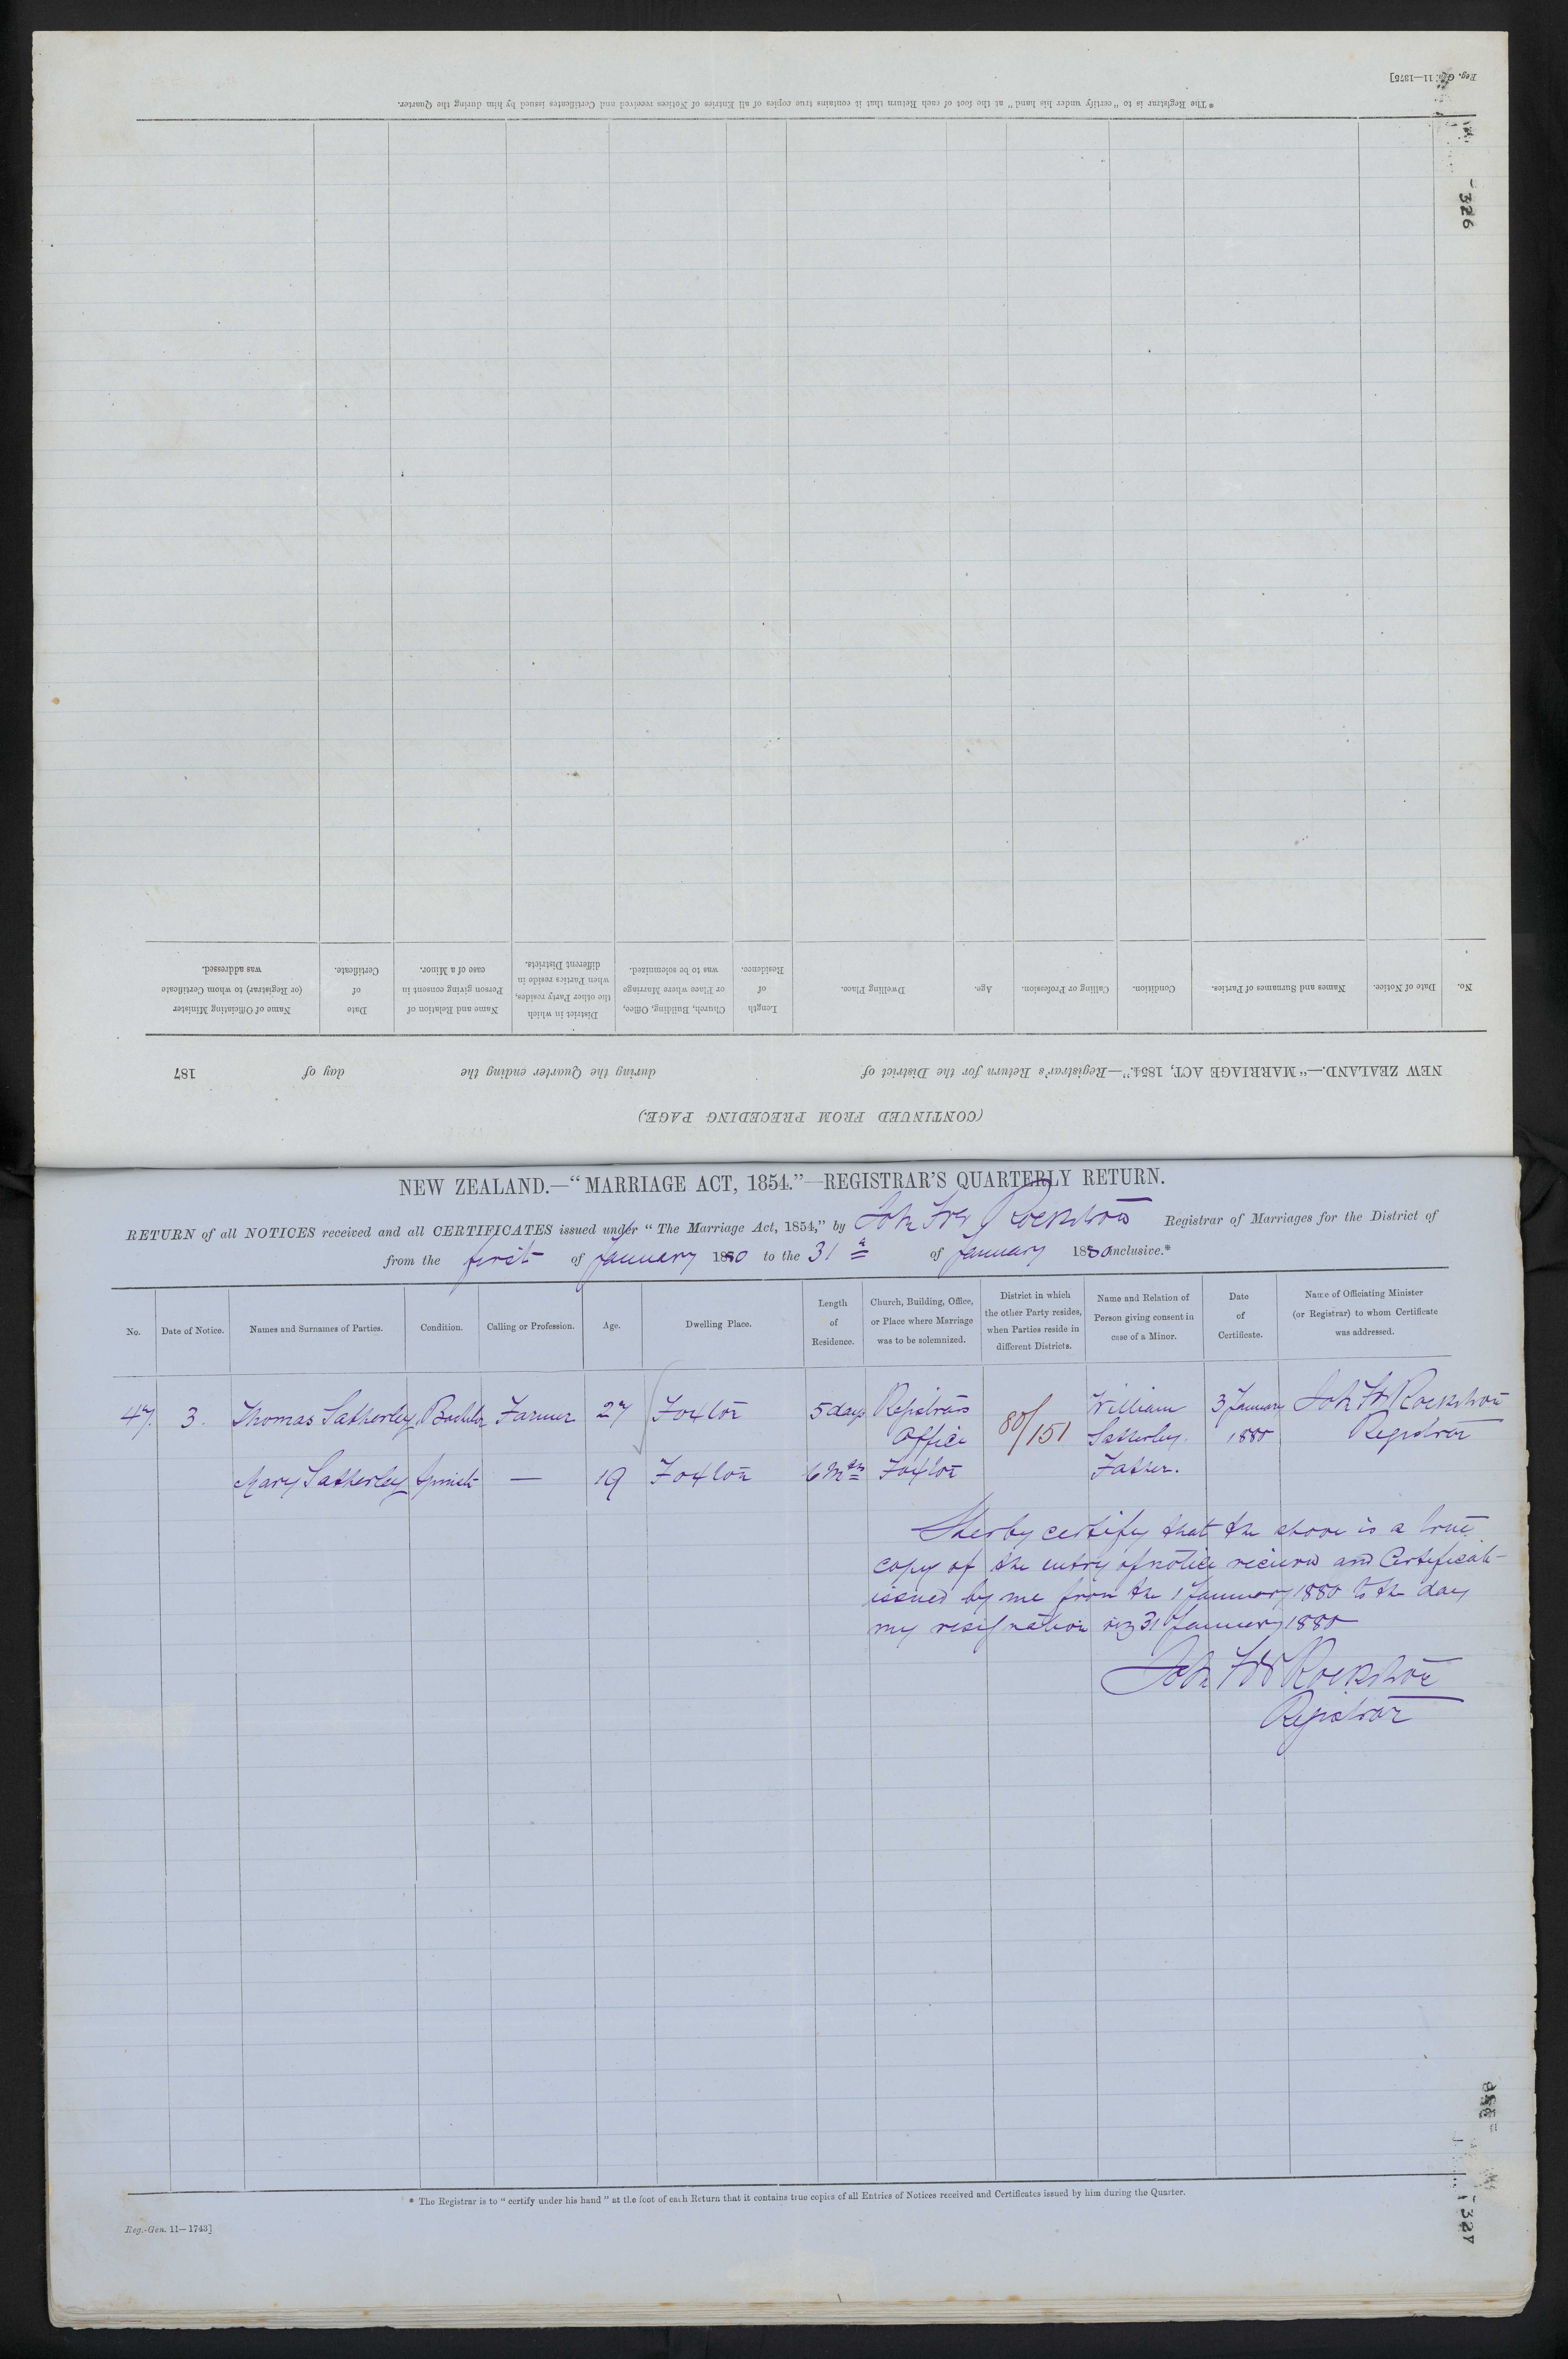 Reg. Gen. 11—1375]
326
* The Registrar is to "certify under his hand" at the foot of each Return that it contains true copies of all Entries of Notices received and Certificates issued by him during the Quarter.
(CONTINUED FROM PRECEDING PAGE.)
NEW ZEALAND.—"MARRIAGE ACT, 1854."—Registrar's Return for the District of during the Quarter ending the day of 187
No. Date of Notice. Names and Surnames of Parties. Condition. Calling or Profession. Age. Dwelling Place. Length of Residence. Church, Building, Office, or Place where Marriage was to be solemnized. District in which the other Party resides, when Parties reside in different Districts. Name and Relation of Person giving consent in case of a Minor. Date of Certificate. Name of Officiating Minister (or Registrar) to whom Certificate was addressed.
NEW ZEALAND.—"MARRIAGE ACT, 1854."—REGISTRAR'S QUARTERLY RETURN.
RETURN of all NOTICES received and all CERTIFICATES issued under "The Marriage Act, 1854," by John Fred Rockstrow Registrar of Marriages for the District of
from the first of January 1880 to the 31st of January 1880 inclusive.*
No. Date of Notice. Names and Surnames of Parties. Condition. Calling or Profession. Age. Dwelling Place. Length of Residence. Church, Building, Office, or Place where Marriage was to be solemnized. District in which the other Party resides, when Parties reside in different Districts. Name and Relation of Person giving consent in case of a Minor. Date of Certificate. Name of Officiating Minister (or Registrar) to whom Certificate was addressed.
47. 3. Thomas Satherley Bachelor Farmer 27 Foxton 5 days Registrars 80/151 William 3 January John Fr Rockstrow
Office Satherley. 1880 Registrar
Mary Satherley Spinster — 19 Foxton 6 Mths Foxton Father.
I herby certify that the above is a true
copy of the entry of notice recieved and Certificate
issued by me from the 1 January 1880 to the day
my resignation viz 31 January 1880
John Fred Rockstrow
Registrar
* The Registrar is to "certify under his hand" at the foot of each Return that it contains true copies of all Entries of Notices received and Certificates issued by him during the Quarter.
Reg.-Gen. 11—1743]
327